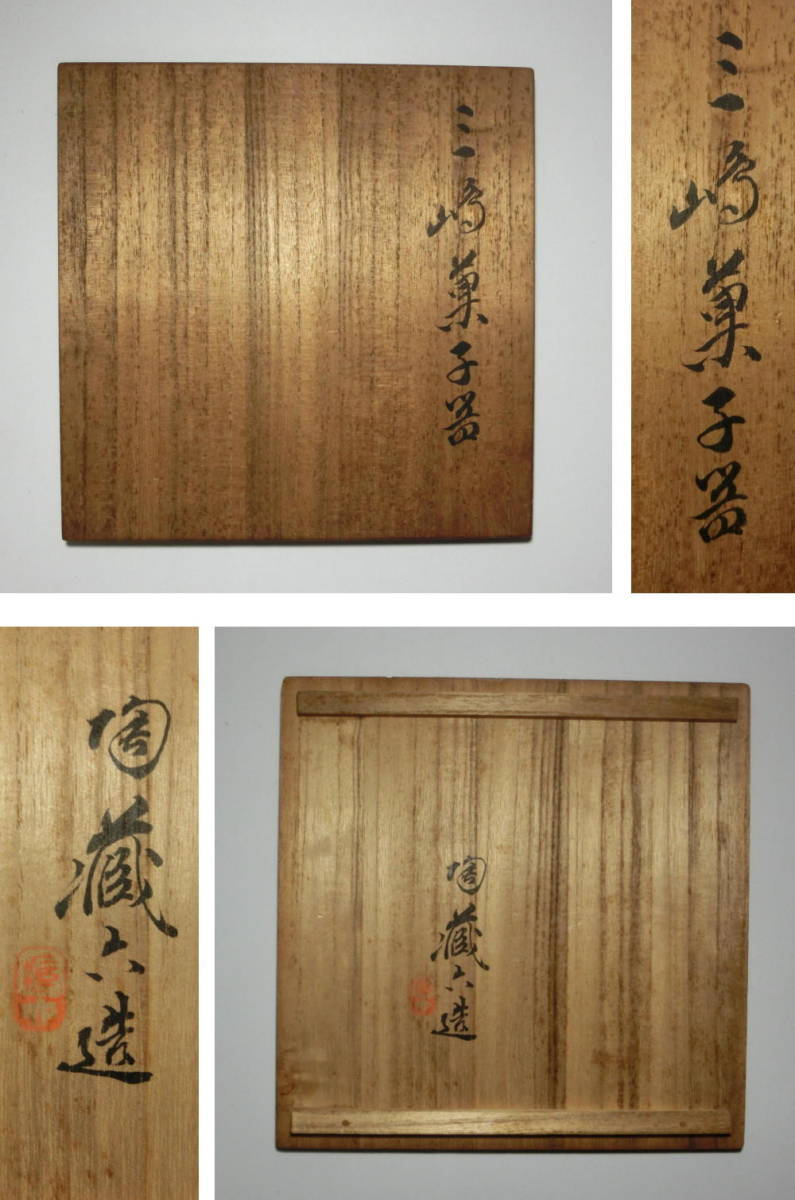 三嶋菓子器
三嶋菓子器
陶藏六造
陶藏六造